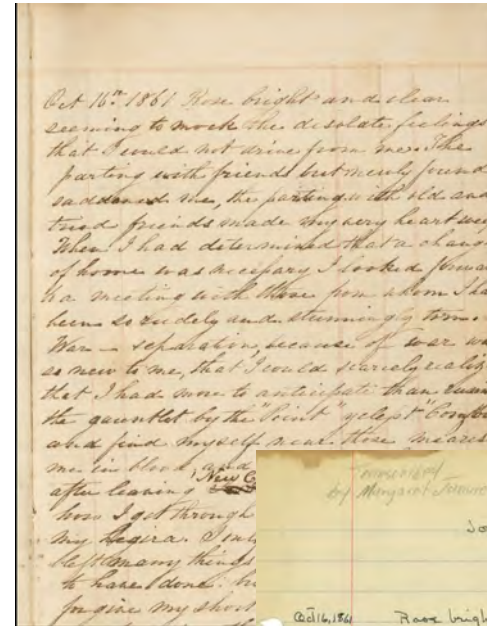 Oct 16th 1861 Rose bright and clear
seeming to mock the desolate feelings
that I could not drive from me. The
parting with friends but newly found
saddened me, the parting with old and
tried friends made my very heart weep
When I had determined that a change
of home was necessary I looked forwa
to a meeting with those from whom I ha
been so rudely and stunningly torn.
War – separation, because of war wa
so new to me, that I could scarcely realiz
that I had more to anticipate than runn
the gauntlet by the "Point" yclept "Comfor
and find myself near those neares
me in blood, and
after leaving New
how I got through
my hegira. I
left many things
to have done.
forgive my short
Transcribed
by Margaret
Oct 16, 1861 Rose brigh